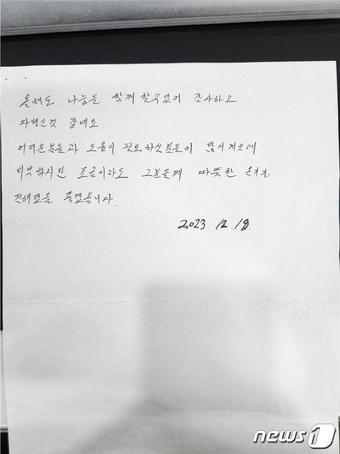 올해도 나눔을 함께 할수있어 감사하고
다행인것 같네요.
어려운분들과 도움이 필요하신분들이 많이계신데
미약하지만 조금이라도 그분들께 따뜻한 온기가
전해졌음 좋겠습니다.
2023. 12. 18
news1